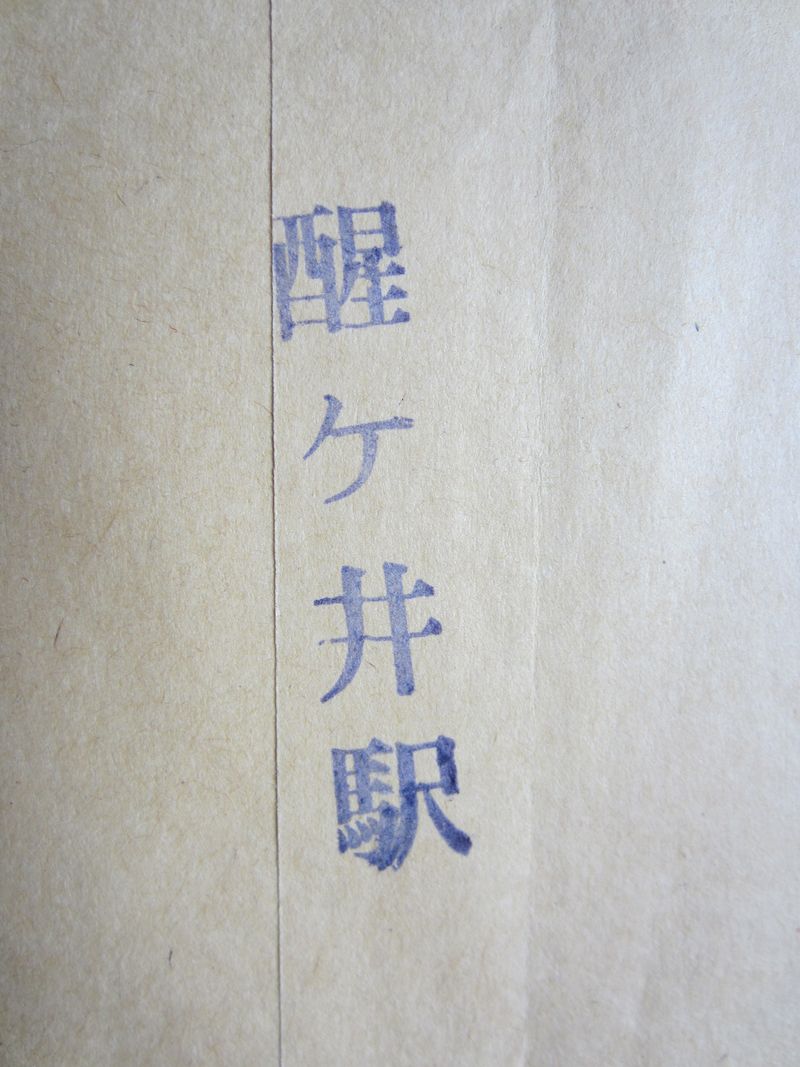 醒ケ井駅